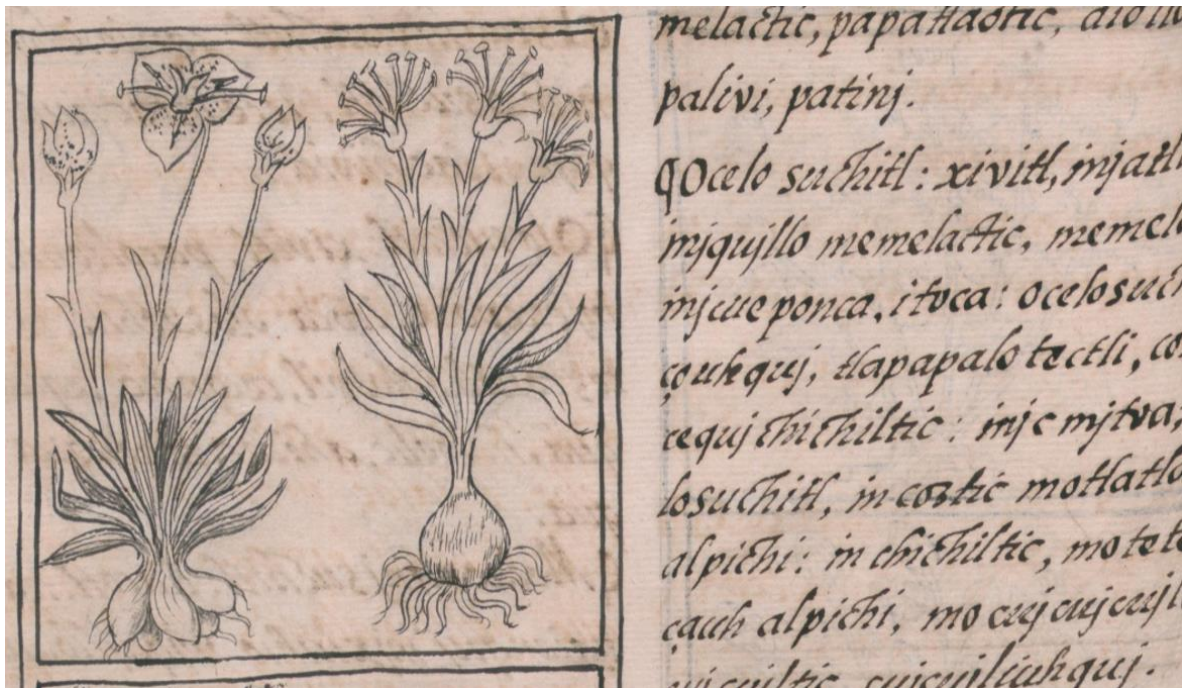 melactic, papatlactic,
palivi, patinj.
¶ Ocelo suchitl: xivitl, injatl
injquillo memelactic, memel
injcueponca, itoca: ocelosuc
çouhquj, tlapapalo tectli, ce
cequj chichiltic: injc mjtva,
losuchitl, in coztic motlatl
alpichi: in chichiltic, mo tete
cauh alpichi, mo cujcujcujl
cujcujliuhquj.